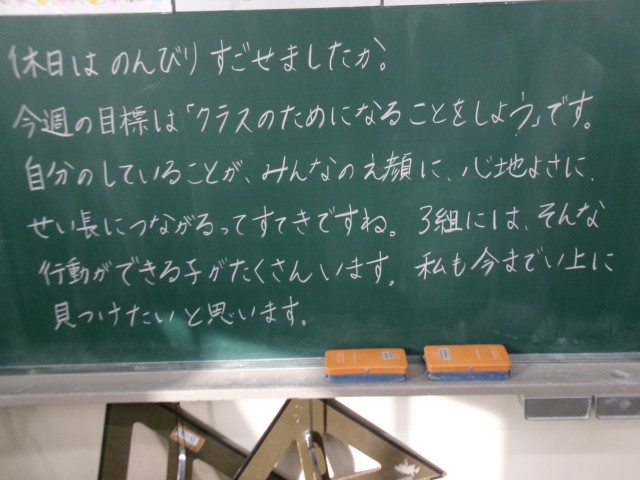 休日は のんびり すごせましたか。
今週の目標は「クラスのためになることをしよう」です。
自分のしていることが、みんなのえ顔に、心地よさに、
せい長につながるってすてきですね。 3組には、そんな
行動ができる子がたくさんいます。 私も今までい上に
見つけたいと思います。